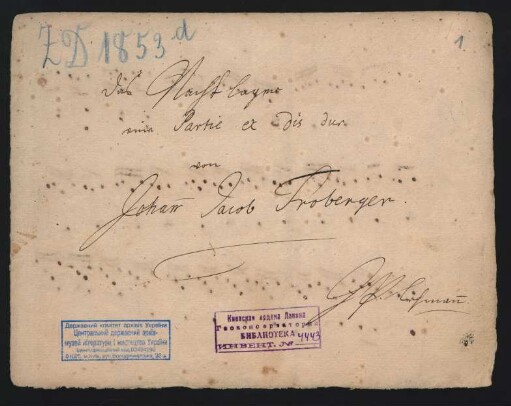 ZD 1853 d
1
Das Nacht
eine Partie ex dis dur
von
Johann Jacob Froberger.
Державний комітет архівів України
Центральний державний архів-
музей літератури і мистецтва України
Киевская ордена Ленина
Госконсерватория
БИБЛИОТЕКА
ИНВЕНТ. № 4443